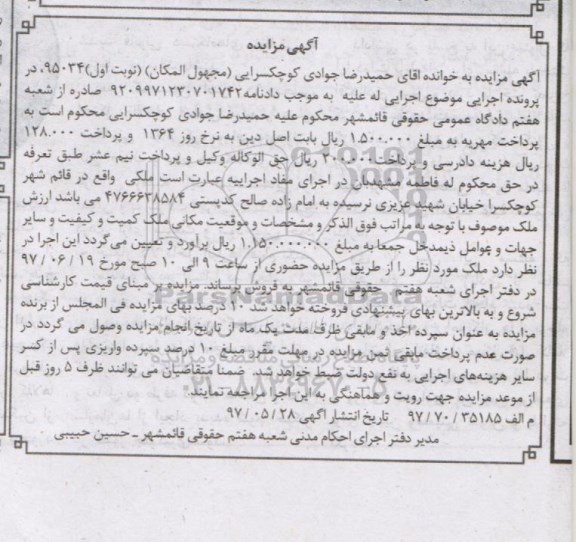 آگهی مزایده
آگهی مزایده به خوانده آقای حمیدرضا جوادی کوچکسرایی (مجهول المکان) (نوبت اول) ۹۵۰۳۴، در
پرونده اجرایی موضوع اجرایی له علیه به موجب دادنامه ۹۲۰۹۹۷۱۲۳۰۷۰۱۷۴۲ صادره از شعبه
هفتم دادگاه عمومی حقوقی قائمشهر محکوم علیه حمیدرضا جوادی کوچکسرایی محکوم است به
پرداخت مهریه به مبلغ ۱.۵۰۰.۰۰۰ ریال بابت اصل دین به نرخ روز ۱۳۶۴ و پرداخت ۱۲۸.۰۰۰
ریال هزینه دادرسی و پرداخت ریال حق الوکاله وکیل و پرداخت نیم عشر طبق تعرفه
در حق محکوم له فاطمه مشهدبان در اجرای مفاد اجراییه عبارت است ملکی واقع در قائم شهر
کوچکسرا خیابان شهید عزیزی نرسیده به امام زاده صالح کدپستی ۴۷۶۶۶۳۸۵۸۴ می باشد ارزش
ملک موصوف با توجه به مراتب فوق الذکر و مشخصات و موقعیت مکانی ملک کمیت و کیفیت و سایر
جهات و عوامل ذیمدخل جمعا به مبلغ ۱.۱۵۰.۰۰۰.۰۰۰ ریال برآورد و تعیین می گردد این اجرا در
نظر دارد ملک مورد نظر را از طریق مزایده حضوری از ساعت ۹ الی ۱۰ صبح مورخ ۹۷/۰۶/۱۹
در دفتر اجرای شعبه هفتم حقوقی قائمشهر به فروش برساند. مزایده بر مبنای قیمت کارشناسی
شروع و به بالاترین بهای پیشنهادی فروخته خواهد شد ۱۰ درصد بهای مزایده فی المجلس از برنده
مزایده به عنوان سپرده اخذ و مابقی ظرف مدت یک ماه از تاریخ انجام مزایده وصول می گردد در
صورت عدم پرداخت مابقی ثمن مزایده در مهلت مقرر مبلغ ۱۰ درصد سپرده واریزی پس از کسر
سایر هزینه‌های اجرایی به نفع دولت ضبط خواهد شد. ضمنا متقاضیان می توانند ظرف ۵ روز قبل
از موعد مزایده جهت رویت و هماهنگی به این اجرا مراجعه نمایند.
م الف ۹۷/۷۰/۳۵۱۸۵ تاریخ انتشار آگهی ۹۷/۰۵/۲۸
مدیر دفتر اجرای احکام مدنی شعبه هفتم حقوقی قائمشهر ـ حسین حبیبی
ParsNamadData